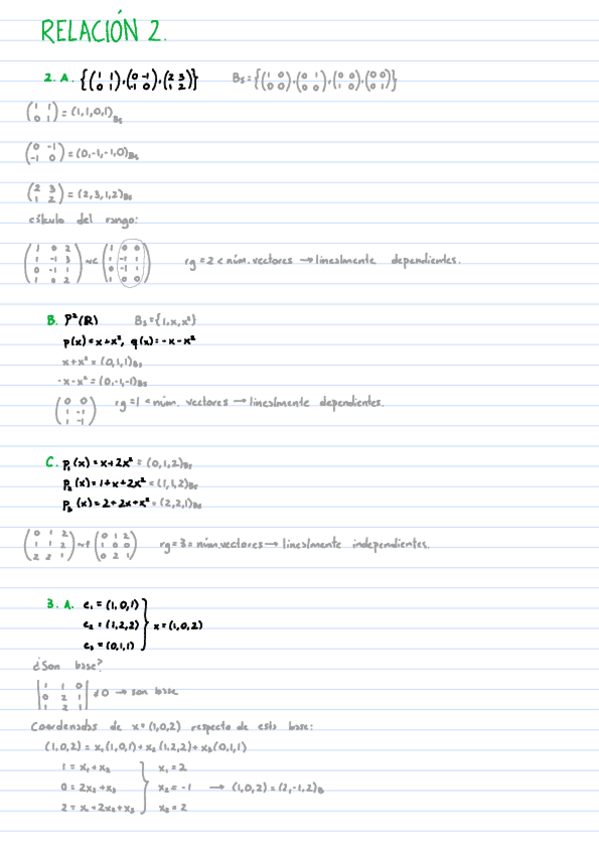 RELACIÓN 2.
2. A. {(1 1 / 0 1), (0 -1 / -1 0), (2 3 / 1 2)} Bs = {(1 0 / 0 0), (0 1 / 0 0), (0 0 / 1 0), (0 0 / 0 1)}
(1 1 / 0 1) = (1,1,0,1)Bs
(0 -1 / -1 0) = (0,-1,-1,0)Bs
(2 3 / 1 2) = (2,3,1,2)Bs
cálculo del rango:
(1 0 2 / 1 -1 3 / 0 -1 1 / 1 0 2) ~c (1 0 0 / 1 -1 1 / 0 -1 1 / 1 0 0) rg = 2 < núm. vectores → linealmente dependientes.
B. P²(R) Bs = {1, x, x²}
p(x) = x + x², q(x) = -x - x²
x + x² = (0,1,1)Bs
-x - x² = (0,-1,-1)Bs
(0 0 / 1 -1 / 1 -1) rg = 1 < núm. vectores → linealmente dependientes.
C. p₁(x) = x + 2x² = (0,1,2)Bs
p₂(x) = 1 + x + 2x² = (1,1,2)Bs
p₃(x) = 2 + 2x + x² = (2,2,1)Bs
(0 1 2 / 1 1 2 / 2 2 1) ~f (0 1 2 / 1 0 0 / 0 2 1) rg = 3 = núm. vectores → linealmente independientes.
3. A. e₁ = (1,0,1)
e₂ = (1,2,2) } x = (1,0,2)
e₃ = (0,1,1)
¿Son base?
|1 1 0 / 0 2 1 / 1 2 1| ≠ 0 → son base
Coordenadas de x = (1,0,2) respecto de esta base:
(1,0,2) = x₁(1,0,1) + x₂(1,2,2) + x₃(0,1,1)
1 = x₁ + x₂ x₁ = 2
0 = 2x₂ + x₃ } x₂ = -1 → (1,0,2) = (2,-1,2)B
2 = x₁ + 2x₂ + x₃ x₃ = 2